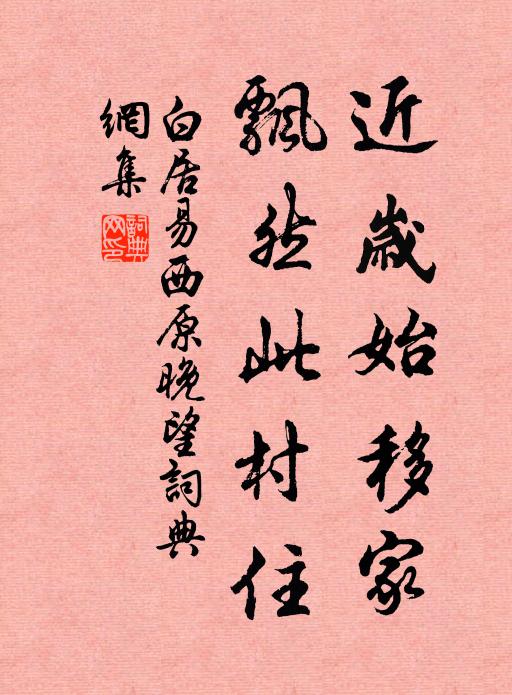 近歲始移家
飄然此村住
白居易西原晚望詞典
網集
詞典
网印